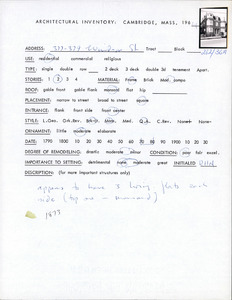 ARCHITECTURAL INVENTORY: CAMBRIDGE, MASS, 196
ADDRESS: St Tract Block
USE: residential commercial religious
TYPE: single double row 2 deck 3 deck double 3d tenement Apart.
STORIES: 1 2 3 4 MATERIAL: Frame Brick Med. compo
ROOF: gable hip gable flank mansard flat hip
PLACEMENT: narrow to street broad to street square
ENTRANCE: flank front side front center
STYLE: L.Geo. Grk.Rev. Med. Q.A. C.Rev. None
ORNAMENT: little moderate elaborate
DATE: 1790 1800 10 20 30 40 50 60 70 80 90 1900 10 20 30
DEGREE OF REMODELING: drastic moderate minor CONDITION: poor fair excel.
IMPORTANCE TO SETTING: detrimental none moderate great INITIALED
DESCRIPTION: (for more important structures only)
appears to have 3 living flats each
side (top one - mansard)
1873